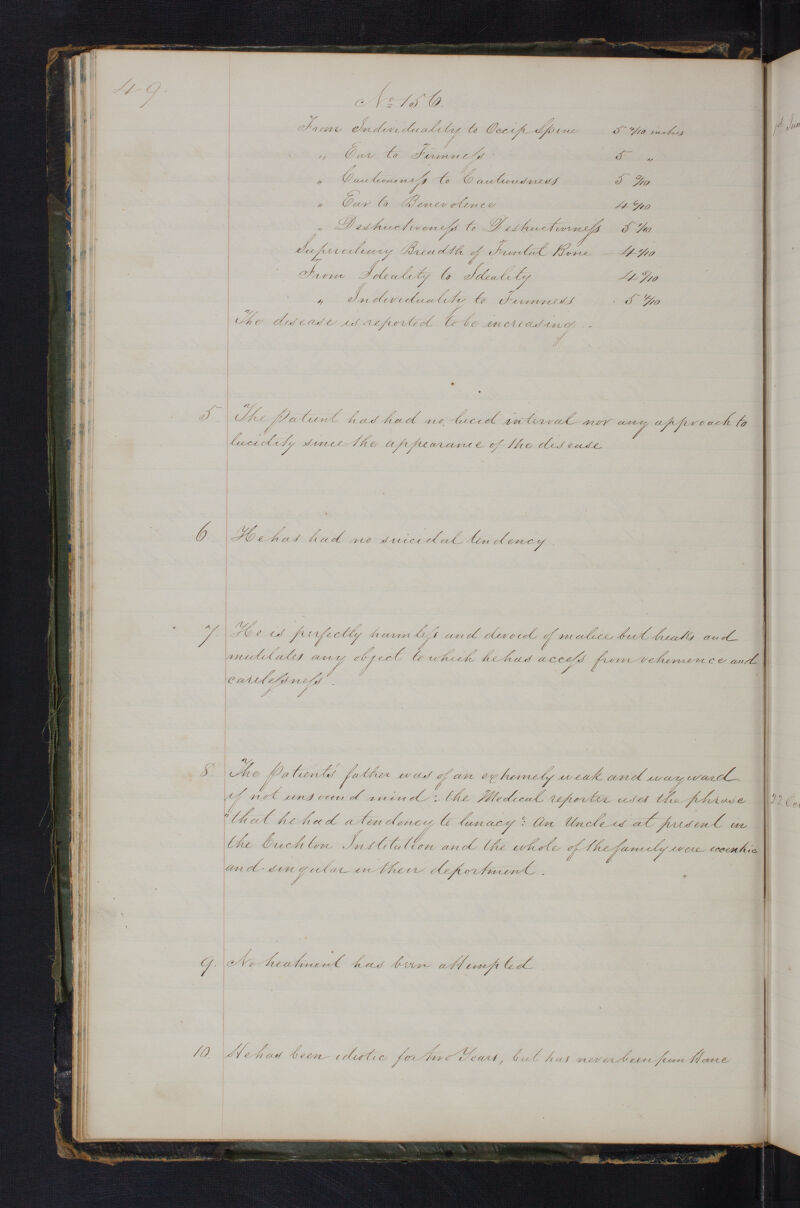 49.
No 156.
From Individuality to Occip Spine 5 /10 inches
„ Ear to Firmness 5 „
„ Cautiousness to Cautiousness 5 /10
„ Ear to Benevolence 4 /10
„ Destructiveness to Destructiveness 5 /10
Superciliary Breadth of Frontal Bone 4 /10
From Ideality to Ideality 4 /10
„ Individuality to Firmness 5 /10
The disease is reported to be increasing.
5. The Patient has had no lucid interval nor any approach to
lucidity since the appearance of the disease
6 He has had no suicidal tendency.
7. He is perfectly harmless and devoid of malice but breaks and
mutilates any object to which he has access from vehemence and
carelessness.
8. The Patient's father was of an extremely weak and wayward
if not unsound mind: the Medical reporter uses the phrase
"that he had a tendency to lunacy": An Uncle is at present in
the Crichton Institution and the whole of the family were eccentric
and singular in their deportment.
9. No treatment has been attempted
10 He has been idiotic for two Years, but has never been from Home
22